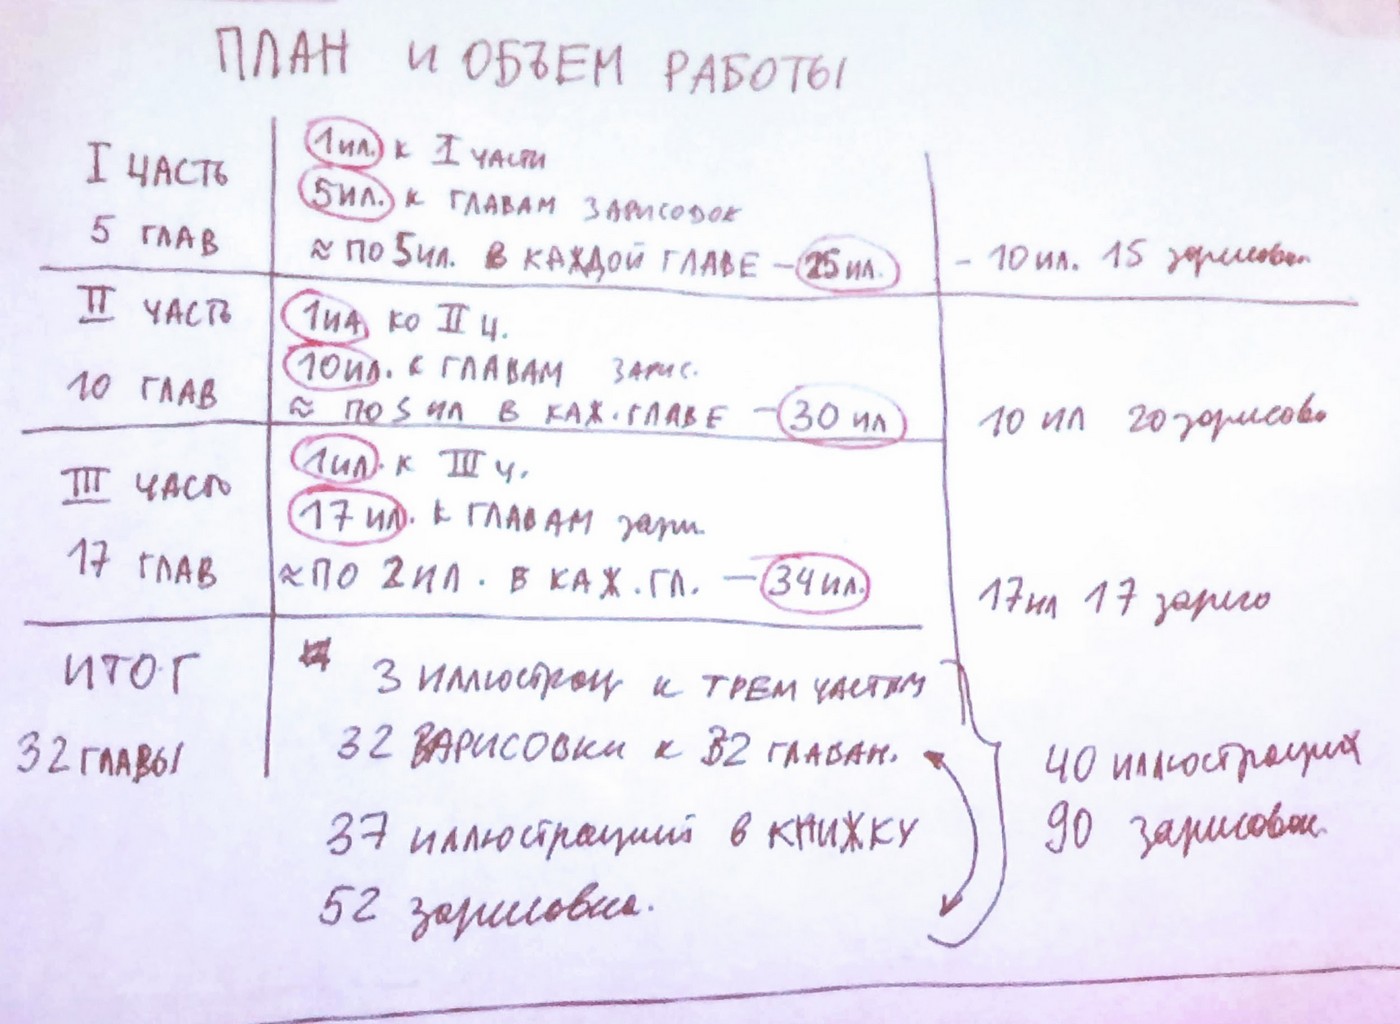 ПЛАН И ОБЪЕМ РАБОТЫ
I ЧАСТЬ
5 ГЛАВ
1 ил. к I части
5 ил. к ГЛАВАМ ЗАРИСОВОК
≈ ПО 5 ил. В КАЖДОЙ ГЛАВЕ – 25 ил.
– 10 ил. 15 зарисовок
II ЧАСТЬ
10 ГЛАВ
1 ил ко II ч.
10 ил. к ГЛАВАМ ЗАРИС.
≈ ПО 3 ил В КАЖ. ГЛАВЕ – 30 ил
10 ил 20 зарисово
III ЧАСТЬ
17 ГЛАВ
1 ил. к III ч.
17 ил. к ГЛАВАМ зари.
≈ ПО 2 ИЛ. В КАЖ. ГЛ. – 34 ил.
17 ил 17 зарисо
ИТОГ
32 ГЛАВЫ
3 иллюстрац к ТРЕМ ЧАСТЯМ
32 ЗАРИСОВКИ к 32 ГЛАВАМ.
37 иллюстраций в КНИЖКУ
52 зарисовка.
40 иллюстраций
90 зарисовок